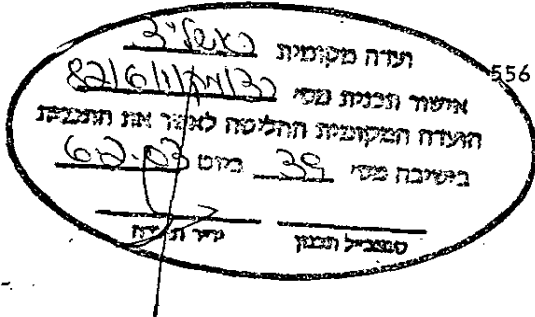 ועדה מקומית ראשל"צ
556
אישור תכנית מס' רצ/מק/82/6/1
הועדה המקומית החליטה לאשר את התכנית
בישיבה מס' 39 ביום 6.2.03
סמנכ"ל תכנון יו"ר הועדה